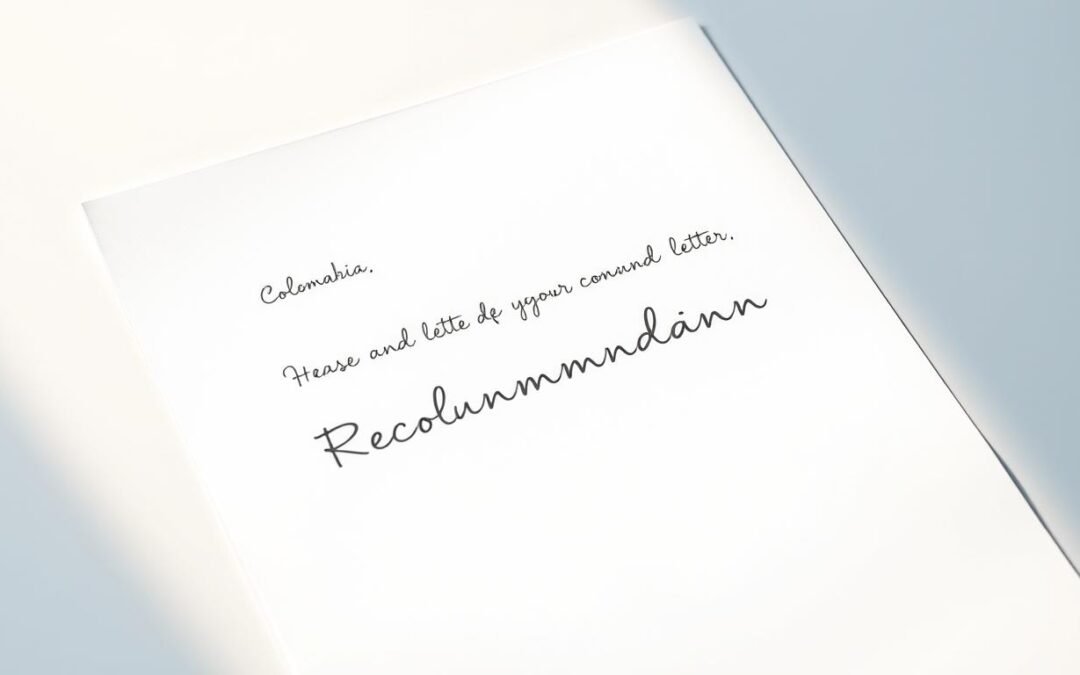 Colomahia.
Hease and lette de ygour conund letter.
Recolunmmndánn